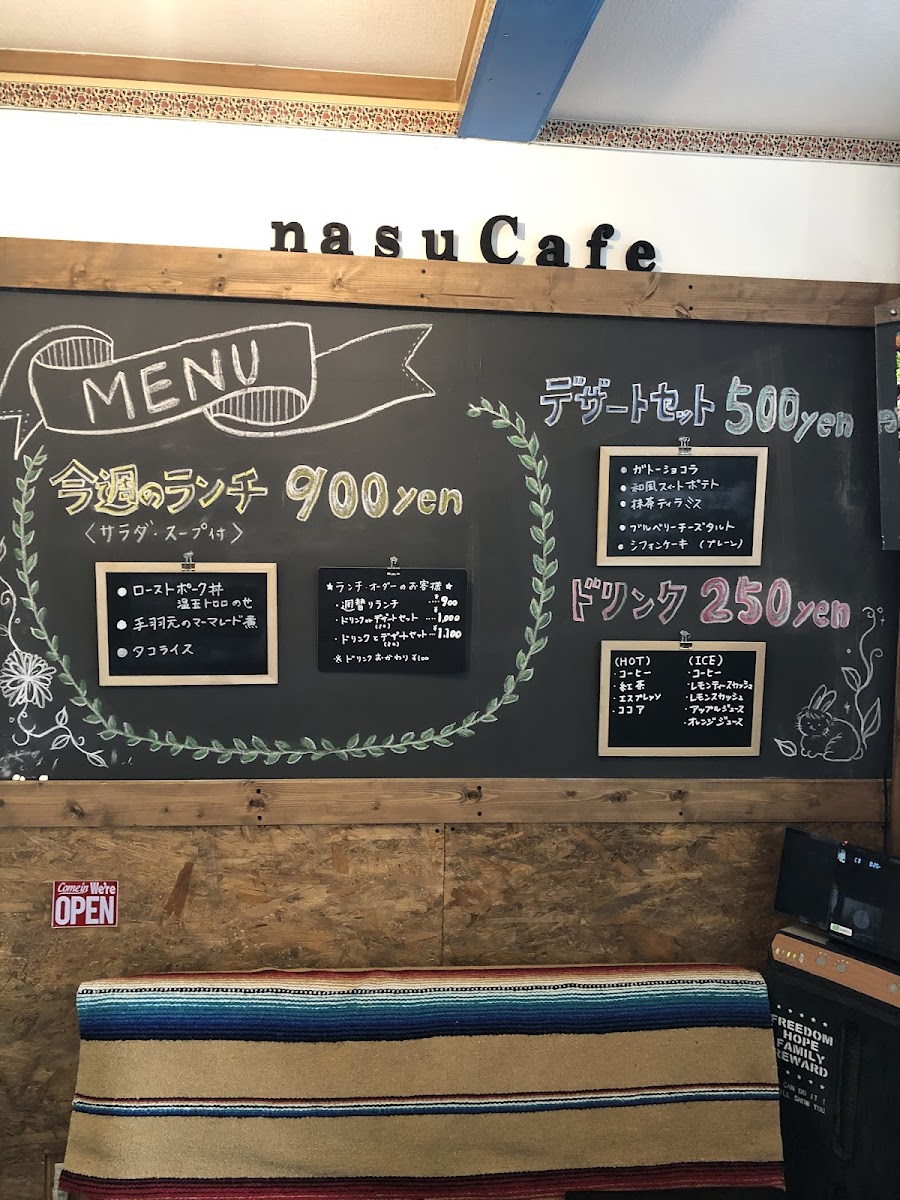 nasuCafe
MENU
今週のランチ 900yen
〈サラダ・スープ付〉
• ローストポーク丼
温玉トロロのせ
• 手羽元のマーマレード煮
• タコライス
★ランチ・オーダーのお客様★
・週替りランチ ...¥900
・ドリンクorデザートセット ...¥1,000
・ドリンクとデザートセット ...¥1,100
※ドリンクおかわり ¥100
デザートセット 500yen
• ガトーショコラ
• 和風スイートポテト
• 抹茶ティラミス
• ブルベリーチーズタルト
• シフォンケーキ (プレーン)
ドリンク 250yen
(HOT)
・コーヒー
・紅茶
・エスプレッソ
・ココア
(ICE)
・コーヒー
・レモンティースカッシュ
・レモンスカッシュ
・アップルジュース
・オレンジジュース
Come in We're
OPEN
FREEDOM
HOPE
FAMILY
REWARD
CAN DO IT!
SHOW YOU